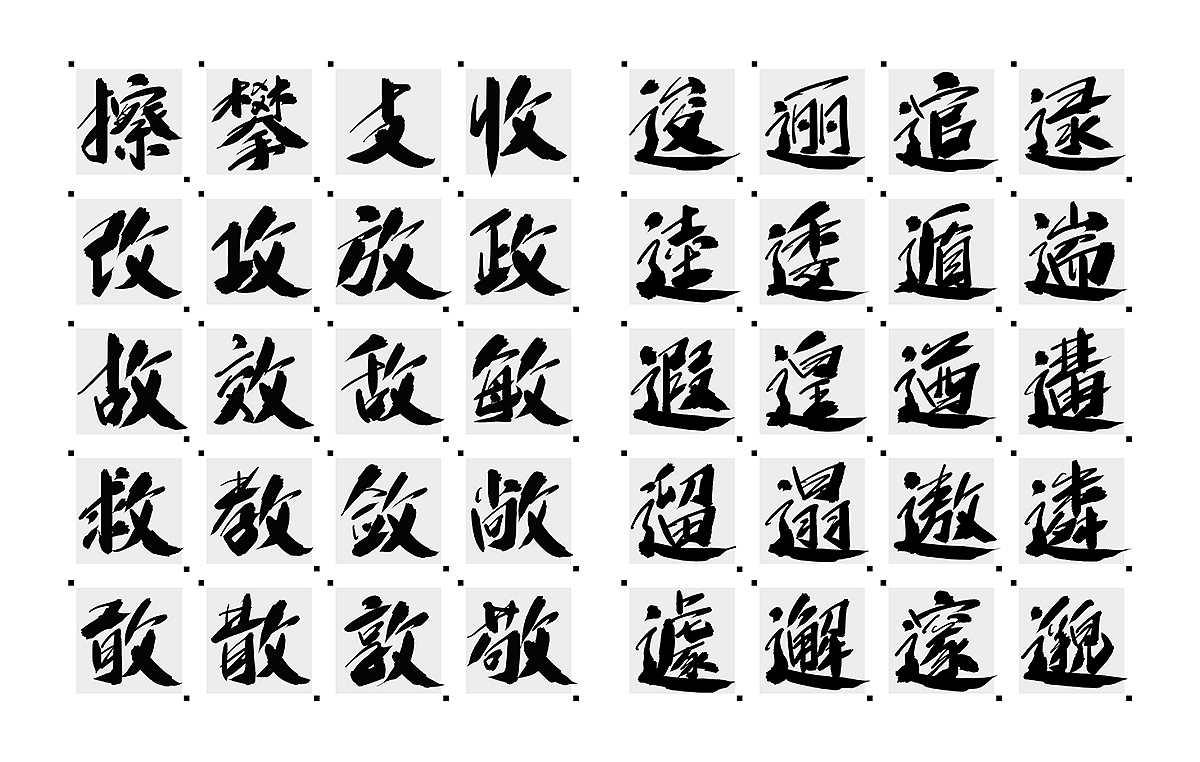 擦攀支收 逡逦逭逯
改攻放政 逵逶遁遄
故效敌敏 遐遑遒遘
救教敛敞 遛遢遨遴
敢散敦敬 遽邂邃邈